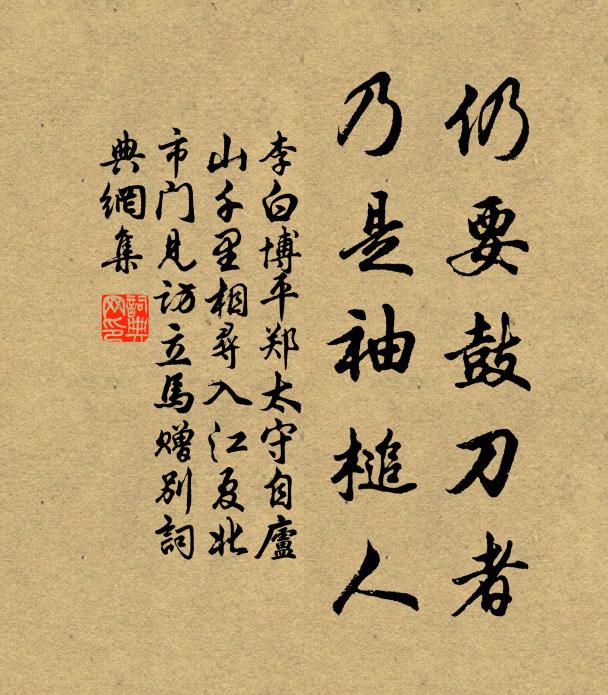 仍要鼓刀者
乃是袖槌人
李白博平郑太守自廬
山千里相尋入江夏北
市门見访立馬赠别詞
典網集
詞典網印